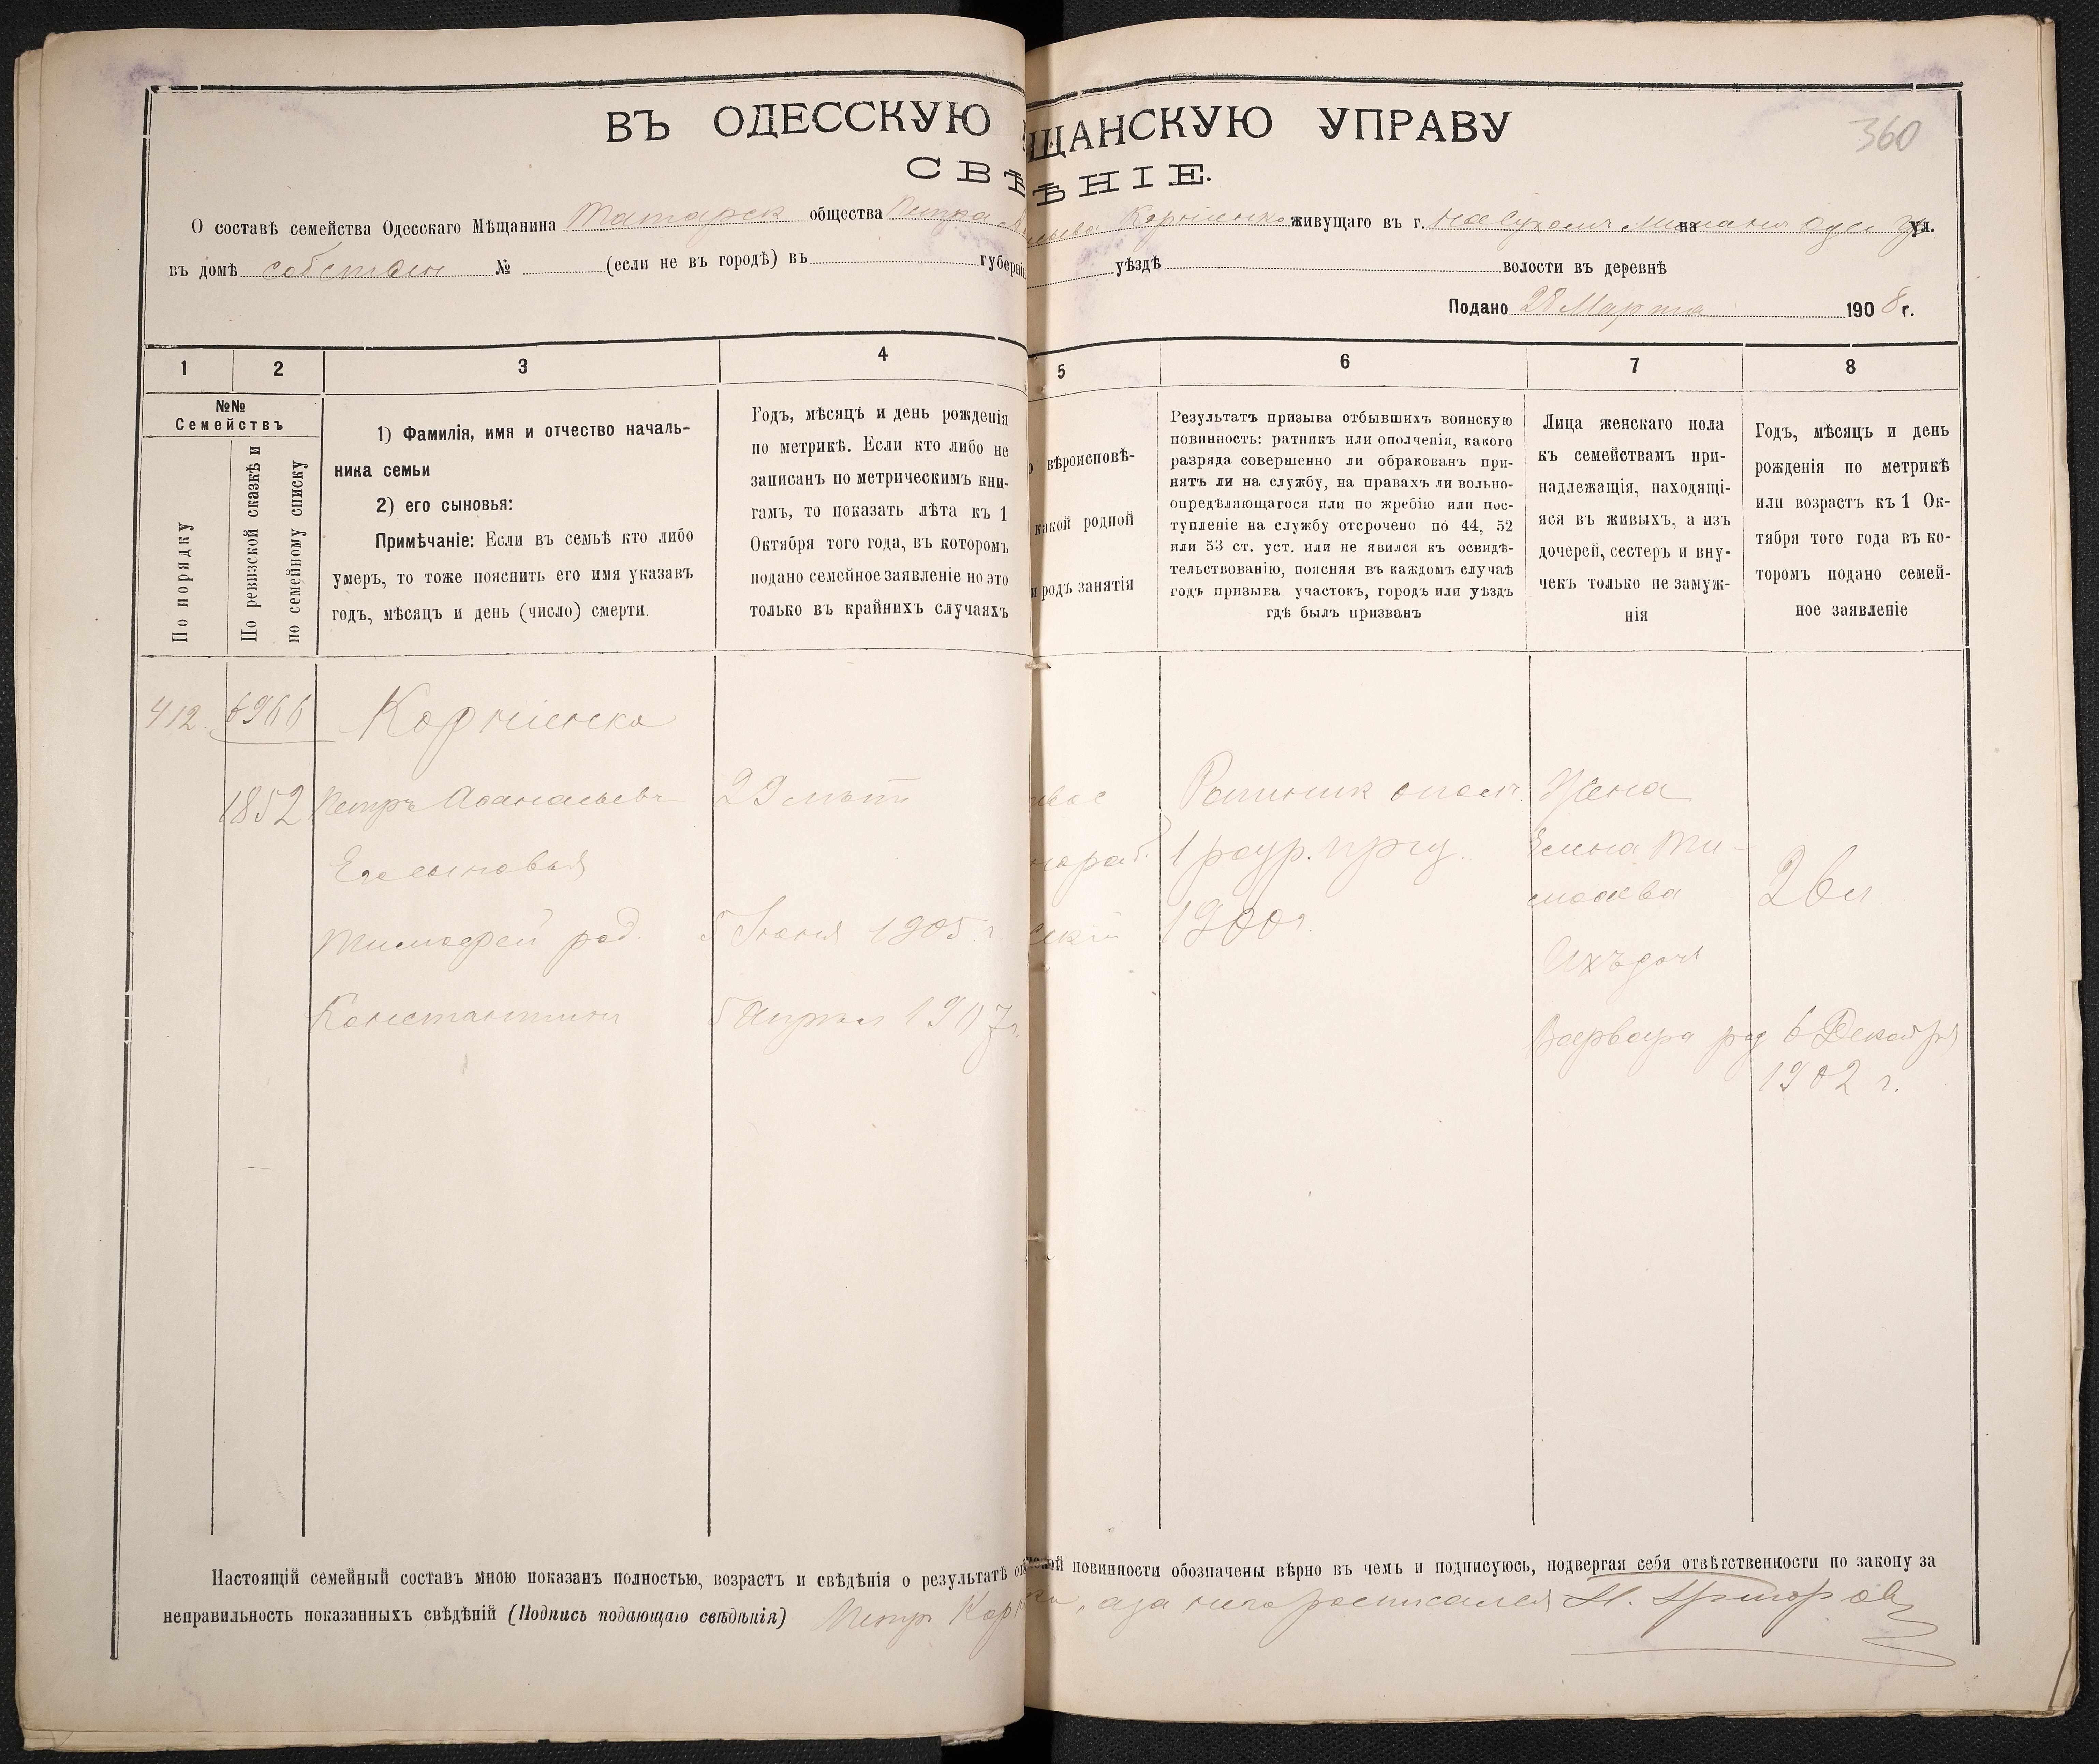 360
ВЪ ОДЕССКУЮ ЩАНСКУЮ УПРАВУ
СВѢ ѢНІЕ.
О составѣ семейства Одесскаго Мѣщанина Татарск общества Петра Корніенко живущаго въ г. на ул.
въ домѣ собствен № (если не въ городѣ) въ губерніи уѣздѣ волости въ деревнѣ
Подано 28 Марта 1908 г.
1 2 3 4 5 6 7 8
№№
Семействъ
По порядку
По ревизской сказкѣ и
по семейному списку
1) Фамилія, имя и отчество началь-
ника семьи
2) его сыновья:
Примѣчаніе: Если въ семьѣ кто либо
умеръ, то тоже пояснить его имя указавъ
годъ, мѣсяцъ и день (число) смерти
Годъ, мѣсяцъ и день рожденія
по метрикѣ. Если кто либо не
записанъ по метрическимъ кни-
гамъ, то показать лѣта къ 1
Октября того года, въ которомъ
подано семейное заявленіе но это
только въ крайнихъ случаяхъ
вѣроисповѣ-
какой родной
и родъ занятія
Результатъ призыва отбывшихъ воинскую
повинность: ратникъ или ополченія, какого
разряда совершенно ли обракованъ при-
нятъ ли на службу, на правахъ ли вольно-
опредѣляющагося или по жребію или пос-
тупленіе на службу отсрочено по 44, 52
или 53 ст. уст. или не явился къ освидѣ-
тельствованію, поясняя въ каждомъ случаѣ
годъ призыва участокъ, городъ или уѣздъ
гдѣ былъ призванъ
Лица женскаго пола
къ семействамъ при-
надлежащія, находящі-
яся въ живыхъ, а изъ
дочерей, сестеръ и вну-
чекъ только не замуж-
нія
Годъ, мѣсяцъ и день
рожденія по метрикѣ
или возрастъ къ 1 Ок-
тября того года въ ко-
торомъ подано семей-
ное заявленіе
412 6966 Корніенко
1852 Петръ Аѳанасьевъ 29 лѣтъ Ратник опол. Жена
Его сыновья 1 разр. приз. Елена Ти-
мофеева 26 л
Тимофей род. 5 Іюня 1905 г. 1900 г.
Ихъ дочь
Константинъ 5 Апрѣля 1907 г. Варвара род 6 Декабря
1902 г.
Настоящій семейный составъ мною показанъ полностью, возрастъ и свѣдѣнія о результатѣ повинности обозначены вѣрно въ чемъ и подписуюсь, подвергая себя отвѣтственности по закону за
неправильность показанныхъ свѣдѣній (Подпись подающаго свѣдѣнія) Петръ Кор , а за него росписался